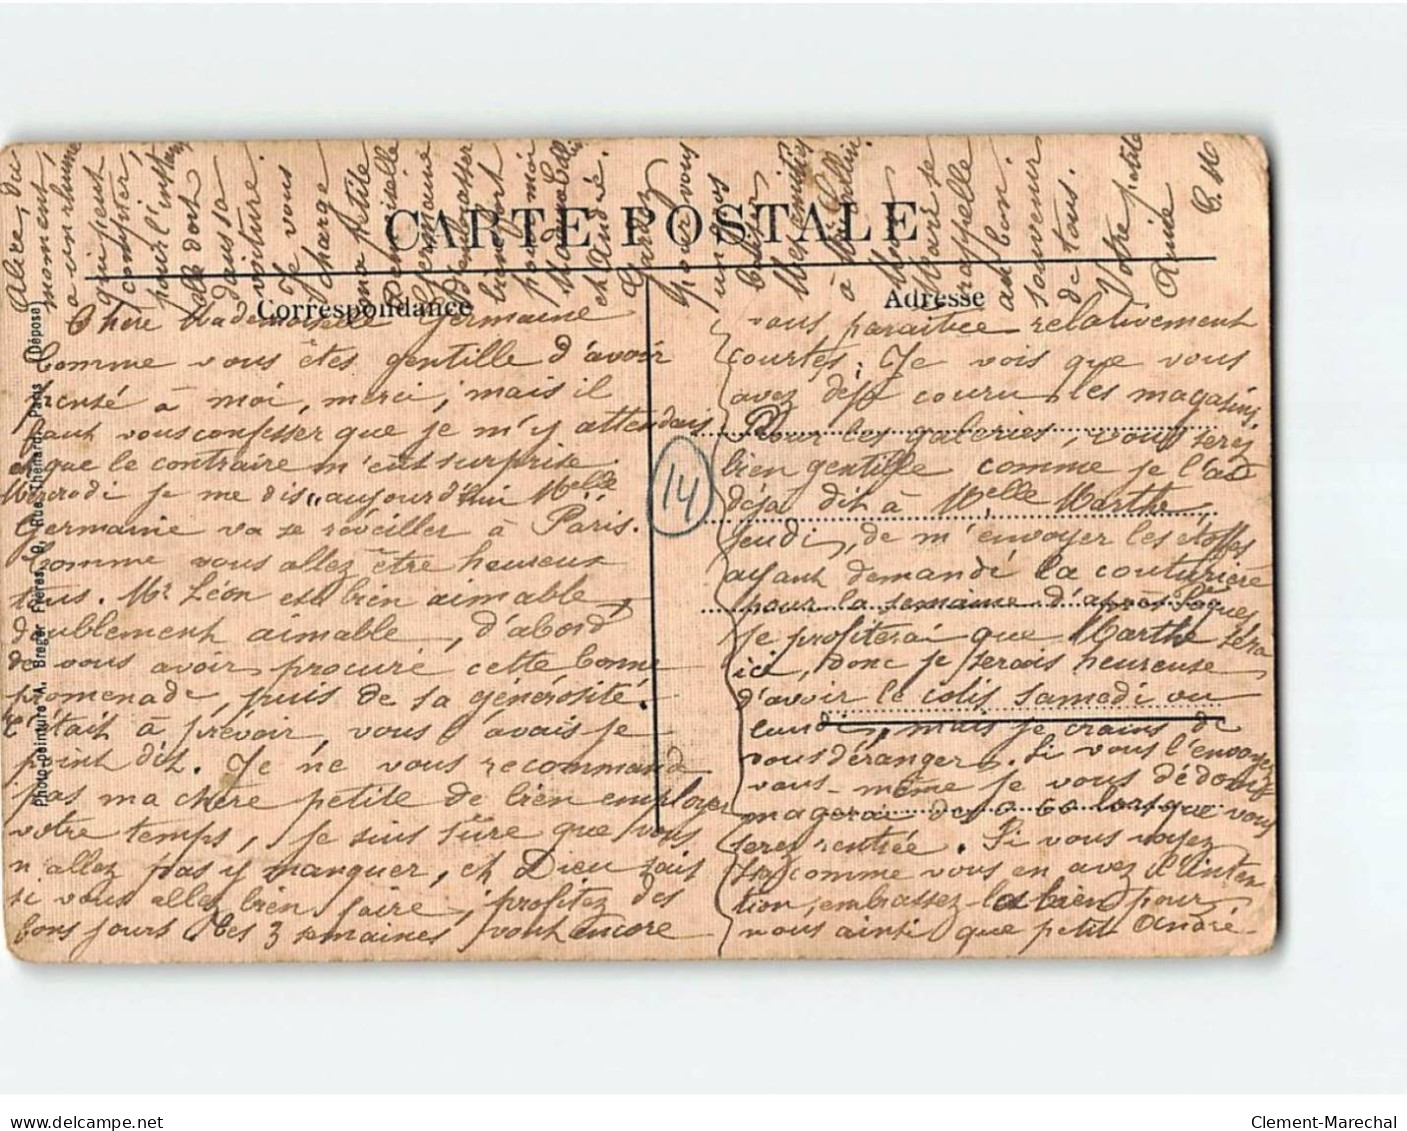 CARTE POSTALE
Correspondance
Adresse
Photo-peinture A. Breger Frères, 9, Rue Thénard, Paris (Déposé)
14
Chère Mademoiselle Germaine
Comme vous êtes gentille d'avoir
pensé à moi, merci, mais il
faut vous confesser que je m'y attendais
et que le contraire m'eut surprise.
Mercredi je me dis "aujourd'hui Melle
Germaine va se réveiller à Paris.
Comme vous allez être heureux
tous. Mr Léon est bien aimable,
doublement aimable, d'abord
de vous avoir procuré cette bonne
promenade, puis de sa générosité.
C'était à prévoir, vous l'avais je
point dit. Je ne vous recommande
pas ma chère petite de bien employer
votre temps, je suis sûre que vous
n'allez pas y manquer, et Dieu sait
si vous allez bien faire, profitez des
bons jours. Les 3 semaines vont encore
vous paraître relativement
courtes. Je vois que vous
avez déjà couru les magasins.
Pour les galeries, vous serez
bien gentille comme je l'ai
déjà dit à Melle Marthe,
jeudi, de m'envoyer les étoffes
ayant demandé la couturière
pour la semaine d'après Pâques
je profiterai que Marthe sera
ici, donc je serais heureuse
d'avoir le colis samedi ou
lundi, mais je crains de
vous déranger. Si vous l'envoyez
vous-même je vous dédom
magerai de cela lorsque vous
serez rentrée. Si vous voyez
comme vous en avez l'inten
tion, embrassez-la bien pour
nous ainsi que petit André.
Alire, du
moment,
a un rhume
qui peut
compter,
pour l'instant
elle dort
dans sa
voiture.
Je vous
charge
ma petite
Demoiselle
Germaine
d'embrasser
bien fort
pour moi
Mademoiselle
et André.
Gardez
pour vous
un gros
baiser.
Mes amitiés
à
Mon
Marie se
rappelle
au bon
souvenir
de tous.
Votre petite
Amie
C. M
Clement-Marechal
www.delcampe.net